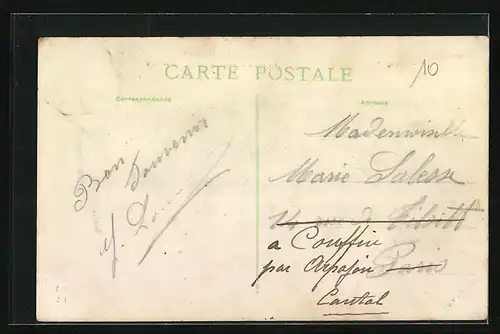 CARTE POSTALE
10
Correspondance
Adresse
Bon
Souvenir
Mademoiselle
Marie Salesse
14 rue
à Couffin
par Arpajon Paris
Cantal